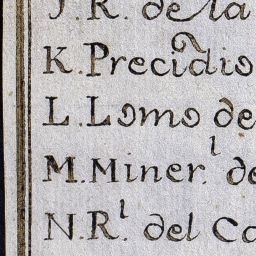 J. R. de la
K. Precidio
L. Lomo de
M. Miner.l de
N. R.l del Co